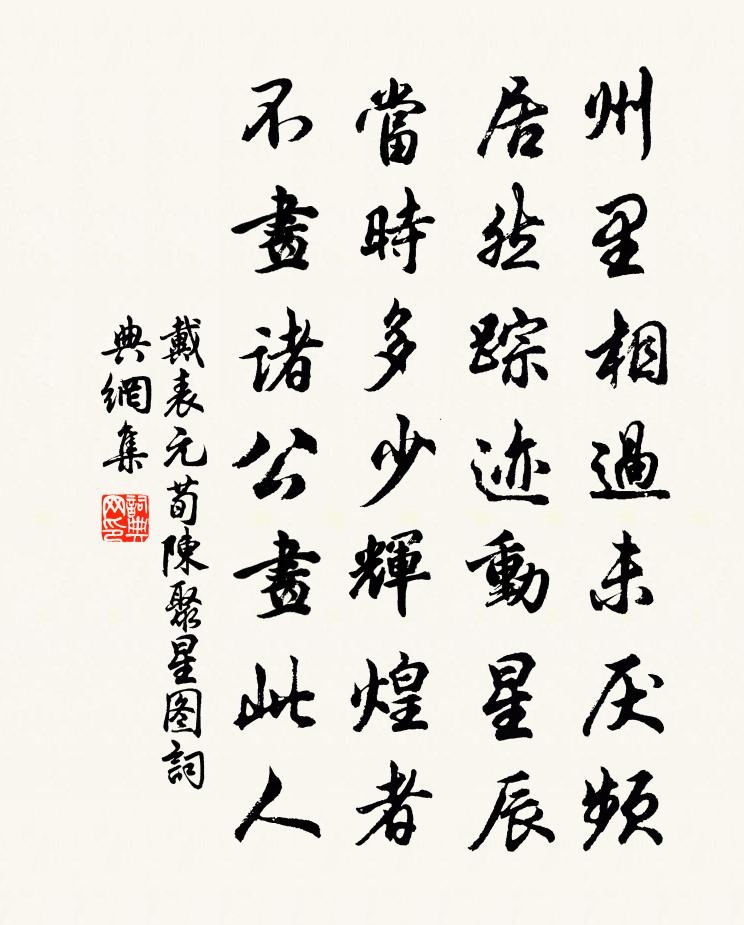 州里相過未厌頻
居然踪迹動星辰
當時多少輝煌者
不畫諸公畫此人
戴表元荀陳聚星图詞
典網集
詞典网印